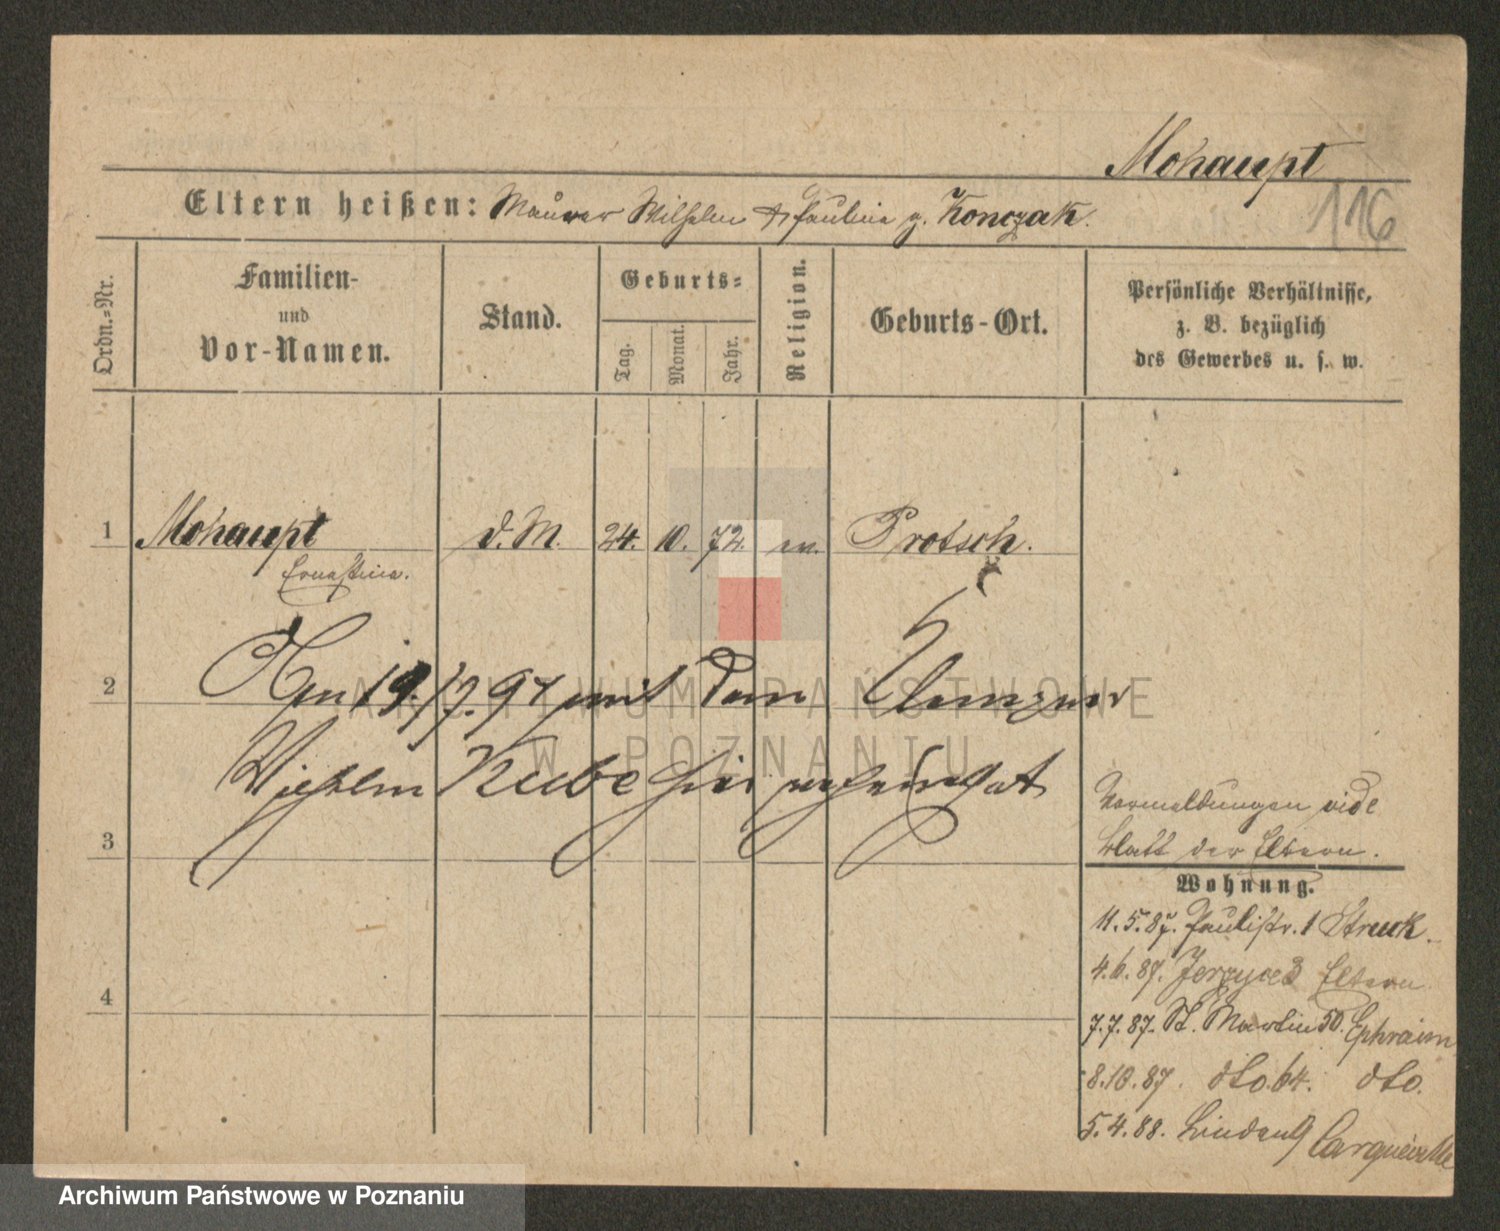 Mohaupt
116
Eltern heißen: Maurer Wilhelm & Pauline g. Konczak.
Ordn.-Nr.
Familien-
und
Vor-Namen.
Stand.
Geburts-
Tag.
Monat.
Jahr.
Religion.
Geburts-Ort.
Persönliche Verhältnisse,
z. B. bezüglich
des Gewerbes u. s. w.
1 Mohaupt d. M. 24. 10. 72. ev. Protsch.
Ernestine.
2 Am 19/7. 97 mit dem
Wilhelm Kube hier verheirathet
3
4
Vormeldungen vide
Blatt der Eltern.
Wohnung.
11.5.87. Paulistr. 1 Struck
4.6.87. Jerzyce 3 Eltern
7.7.87. St. Martin 50. Ephraim
8.10.87. dto. 64. dto.
5.4.88. Linden 9
ARCHIWUM PAŃSTWOWE
W POZNANIU
Archiwum Państwowe w Poznaniu